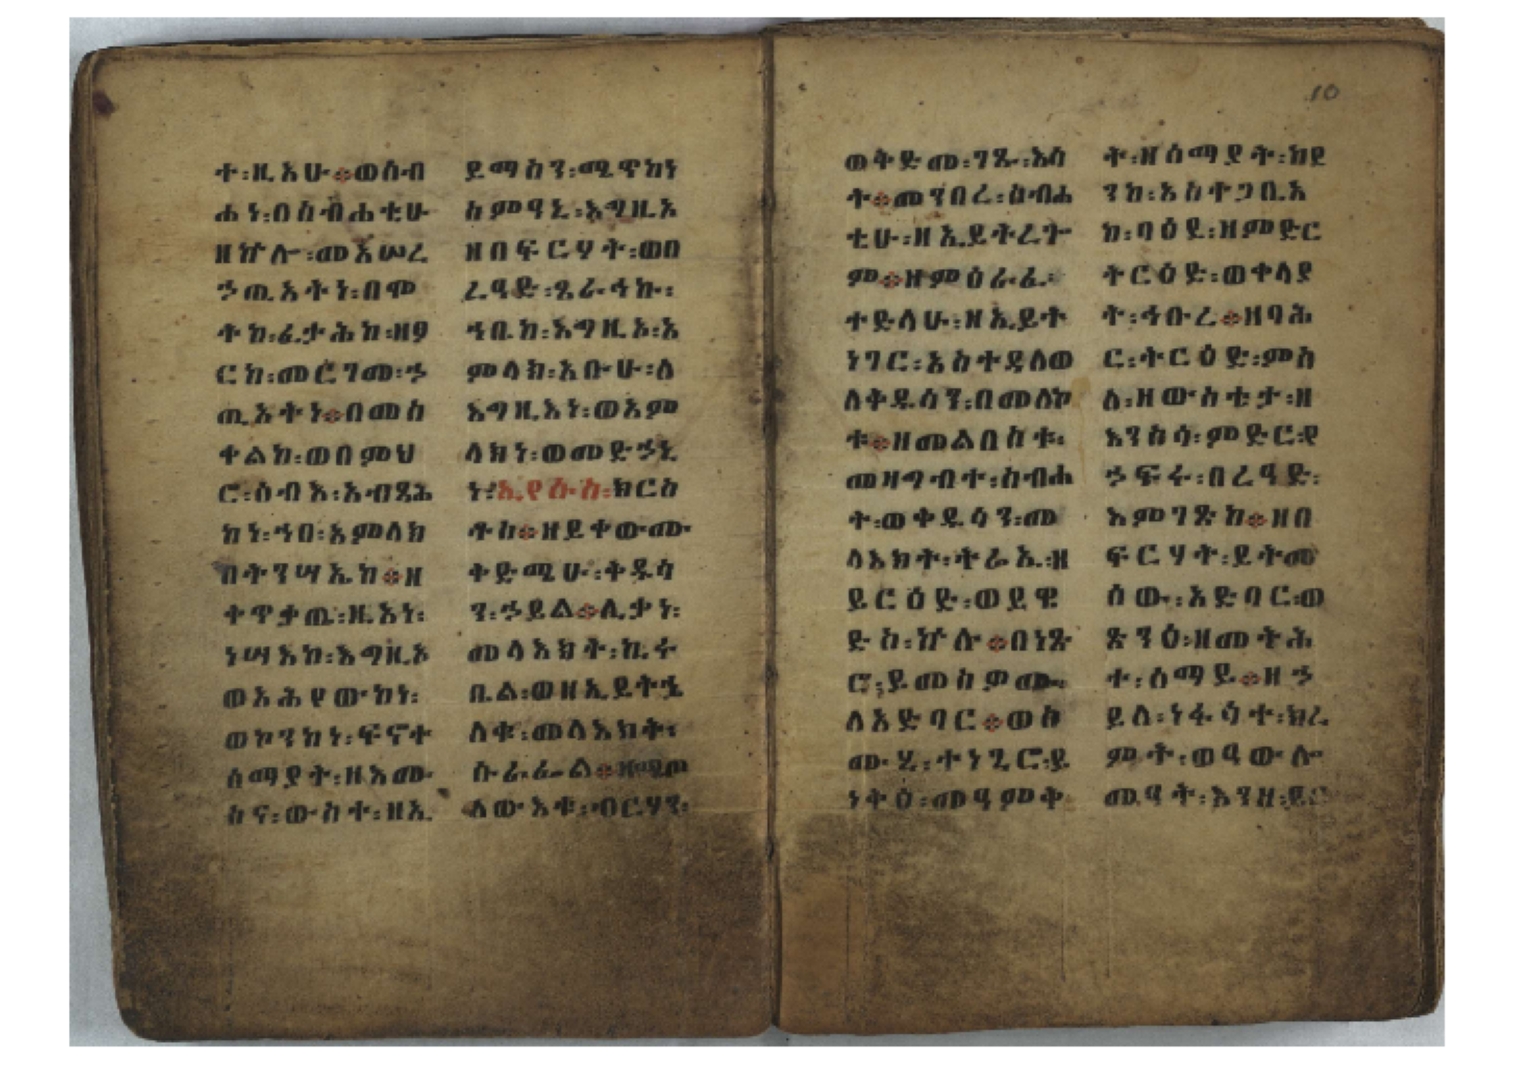 ተ፡ዚአሁ፨ወሰብ
ሐነ፡በስብሐቲሁ
ዘኵሉ፡መአሠረ
ኃጢአትነ፡በሞ
ትከ፡ፈታሕከ፡ዘፃ
ርከ፡መርገመ፡ኃ
ጢአትነ፨በመስ
ቀልከ፡ወበምህ
ሮ፡ሰብእ፡አብጻሕ
ከነ፡ኀበ፡አምላክ
በትንሣኤከ፨ዘ
ቀጥቃጢ፡ዚአነ፡
ነሣእከ፡እግዚኦ
ወአሕየውከነ፡
ወኮንከነ፡ፍኖተ
ሰማያት፡ዘእሙ
ስና፡ውስተ፡ዘኢ
ይማስን፡ሚጥከነ
ስምዓኒ፡እግዚኦ
ዘበፍርሃት፡ወበ
ረዓድ፡ጌራኅኩ፡
ኀቤከ፡እግዚኦ፡አ
ምላክ፡አቡሁ፡ለ
እግዚእነ፡ወአም
ላክነ፡ወመድኃኒ
ነ፡ኢየሱስ፡ክርስ
ቶስ፨ዘይቀውሙ
ቅድሜሁ፡ቅዱሳ
ን፡ኃይል፨ሊቃነ፡
መላእክት፡ኪሩ
ቤል፡ወዘኢይትኄ
ለቁ፡መላእክት፡
ሱራፌል፨
ለውእቱ፡ብርሃን፡
ወቅድመ፡ገጹ፡እሳ
ት፨መንበረ፡ስብሐ
ቲሁ፡ዘኢይትረጐ
ም፨ዘምዕራፈ፡
ተድላሁ፡ዘኢይት
ነገር፡አስተዳለወ
ለቅዱሳን፡በመለኮ
ቱ፨ዘመልበስቱ፡
መዛግብተ፡ስብሐ
ት፡ወቀዱሳን፡መ
ላእክት፡ትሬኢ፡ዘ
ይርዕድ፡ወይዌ
ድስ፡ኵሉ፨በነጽ
ሮ፡ይመስዎሙ፡
ለአድባር፨ወስ
ሙ፡ሂ፡ተነጊሮ፡ይ
ነቅዕ፡መዓምቅ
ት፡ዘሰማያት፡ከደ
ንከ፡አስተጋቢአ
ከ፡ባዕይ፡ዘምድር
ትርዕድ፡ወቀላያ
ት፡ኅቡረ፨ዘባሕ
ር፡ትርዕድ፡ምስ
ለ፡ዘውስቴታ፡ዘ
እንስሳ፡ምድር፡የ
ኃፍሩ፡በረዓድ፡
እምገጽከ፨ዘበ
ፍርሃት፡ይትመ
ሰው፡አድባር፡ወ
ጽንዕ፡ዘመትሕ
ተ፡ሰማይ፨ዘኃ
ይለ፡ነፋሳተ፡ክረ
ምት፡ወዓውሎ
መዓት፡እንዘ፡